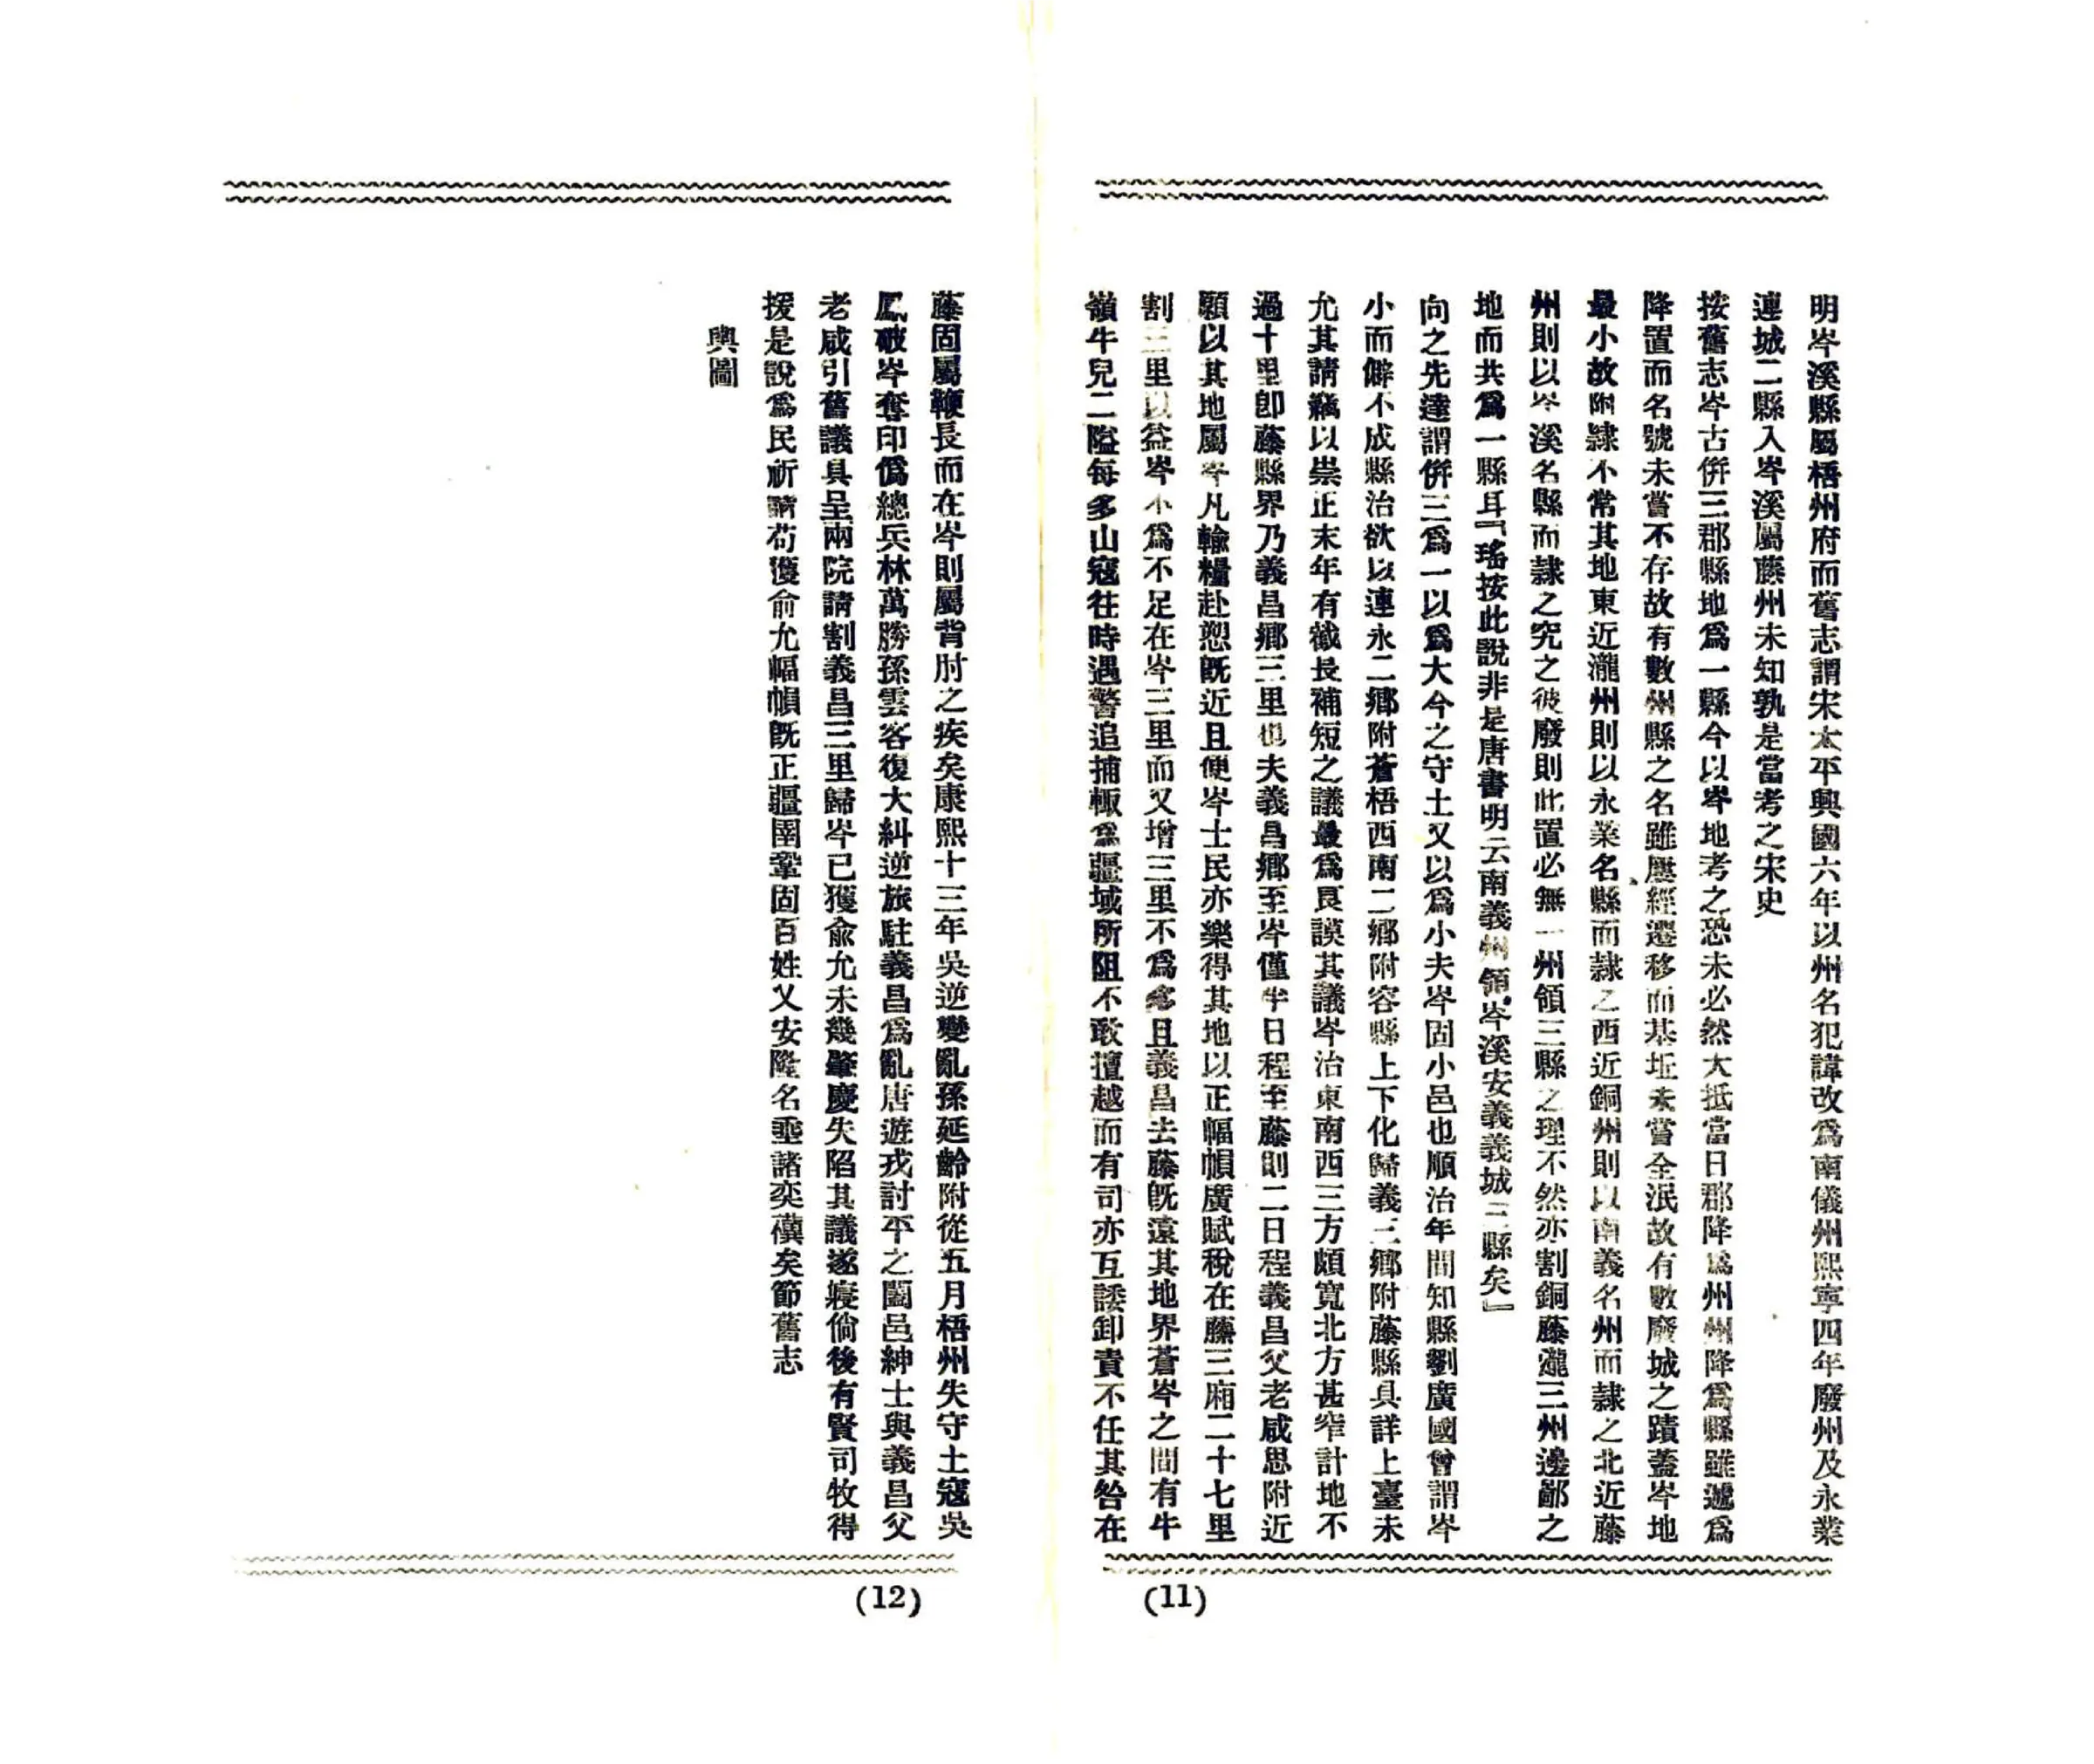 明岑溪縣屬梧州府而舊志謂宋太平興國六年以州名犯諱改爲南儀州熙寧四年廢州及永業
連城二縣入岑溪屬藤州未知孰是當考之宋史
按舊志岑古併三郡縣地爲一縣今以岑地考之恐未必然大抵當日郡降爲州州降爲縣雖遞爲
降置而名號未嘗不存故有數州縣之名雖屢經遷移而基址未嘗全泯故有數廢城之蹟蓋岑地
最小故附隸不常其地東近瀧州則以永業名縣而隸之西近銅州則以南義名州而隸之北近藤
州則以岑溪名縣而隸之究之彼廢則此置必無一州領三縣之理不然亦割銅藤瀧三州邊鄙之
地而共爲一縣耳『瑤按此說非是唐書明云南義州領岑溪安義義城三縣矣』
向之先達謂併三爲一以爲大今之守土又以爲小夫岑固小邑也順治年間知縣劉廣國曾謂岑
小而僻不成縣治欲以連永二鄉附蒼梧西南二鄉附容縣上下化歸義三鄉附藤縣具詳上臺未
允其請竊以崇正末年有截長補短之議最爲良謨其議岑治東南西三方頗寬北方甚窄計地不
過十里卽藤縣界乃義昌鄉三里也夫義昌鄉至岑僅半日程至藤則二日程義昌父老咸思附近
願以其地屬岑凡輸糧赴愬既近且便岑士民亦樂得其地以正幅幀廣賦稅在藤三廂二十七里
割三里以益岑不爲不足在岑三里而又增三里不爲多且義昌去藤既遠其地界蒼岑之間有牛
嶺牛兒二隘每多山寇往時遇警追捕輒爲疆域所阻不敢擅越而有司亦互諉卸責不任其咎在
藤固屬鞭長而在岑則屬背肘之疾矣康熙十三年吳逆變亂孫延齡附從五月梧州失守土寇吳
鳳破岑奪印僞總兵林萬勝孫雲客復大糾逆旅駐義昌爲亂唐遊戎討平之闔邑紳士與義昌父
老咸引舊議具呈兩院請割義昌三里歸岑已獲俞允未幾肇慶失陷其議遂寢倘後有賢司牧得
援是說爲民祈請苟獲俞允幅幀既正疆圉鞏固百姓乂安隆名垂諸奕禩矣節舊志
輿圖
(11)
(12)